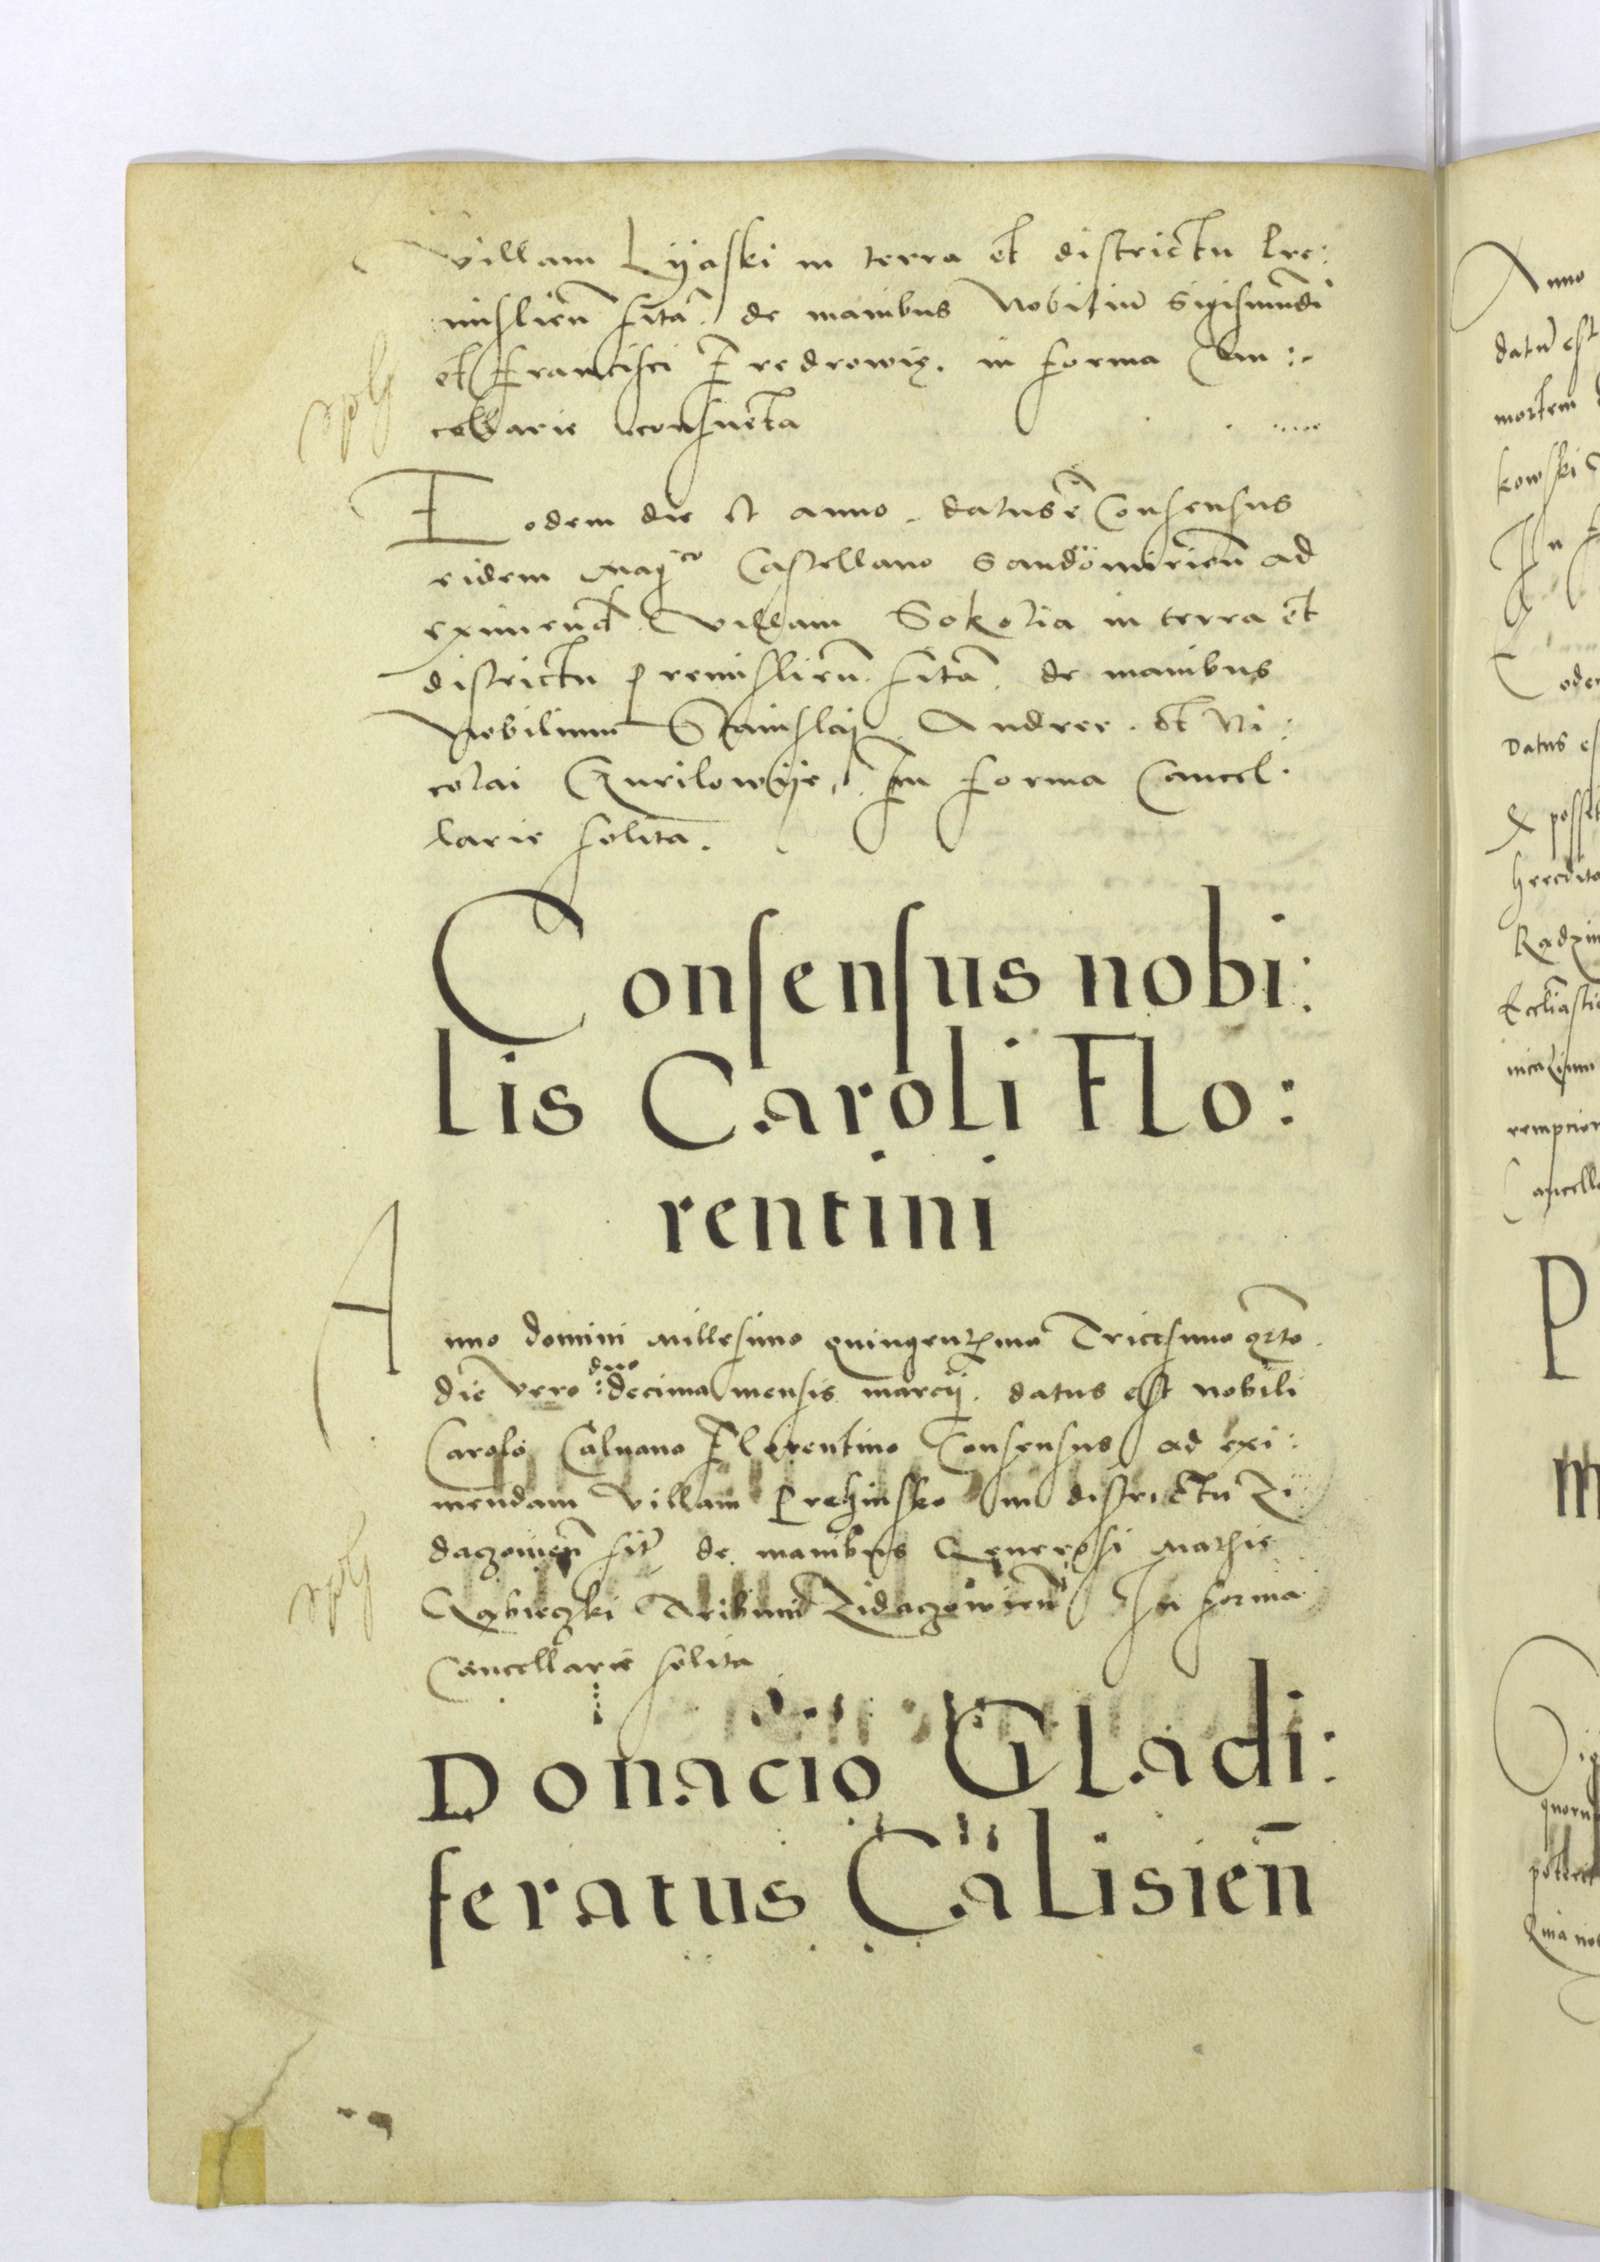 villam Lyaski in terra et districtu Pre:
mislien̄ sitā. de manibus Nobiliū Sigismūdi
et Francisci Fredrowię. in forma Can:
cellarie consueta
Eodem die et anno. datus ē Consensus
eidem Mag^co Castellano Sandomirien̄ ad
eximend villam Sokolia in terra et
districtu premislien̄. sitā. de manibus
Nobilium Stanislai. Andree. et Ni:
colai Gurilowye. In forma Cancel.
larie solita.
Consensus nobi:
lis Caroli Flo:
rentini
Anno domini Millesimo quingen^mo Tricesimo q̄rto.
die vero :duodecima mensis marcij. datus est nobili
Carolo Calvano Florentino Consensus ad exi:
mendam villam Prehinsko in districtu Zi
daczovien̄ sit̄ de manibus Generosi Mathie
Gabieczki Tribuni Zidaczowien̄ In forma
Cancellarie solita
Donacio Gladi:
feratus Calisien̄
Anno
datū est
mortem
kowski
In
Eodem
Datus es
posset
heredita
Radzim
Ecclīasti
P
m
quoru
Quia no